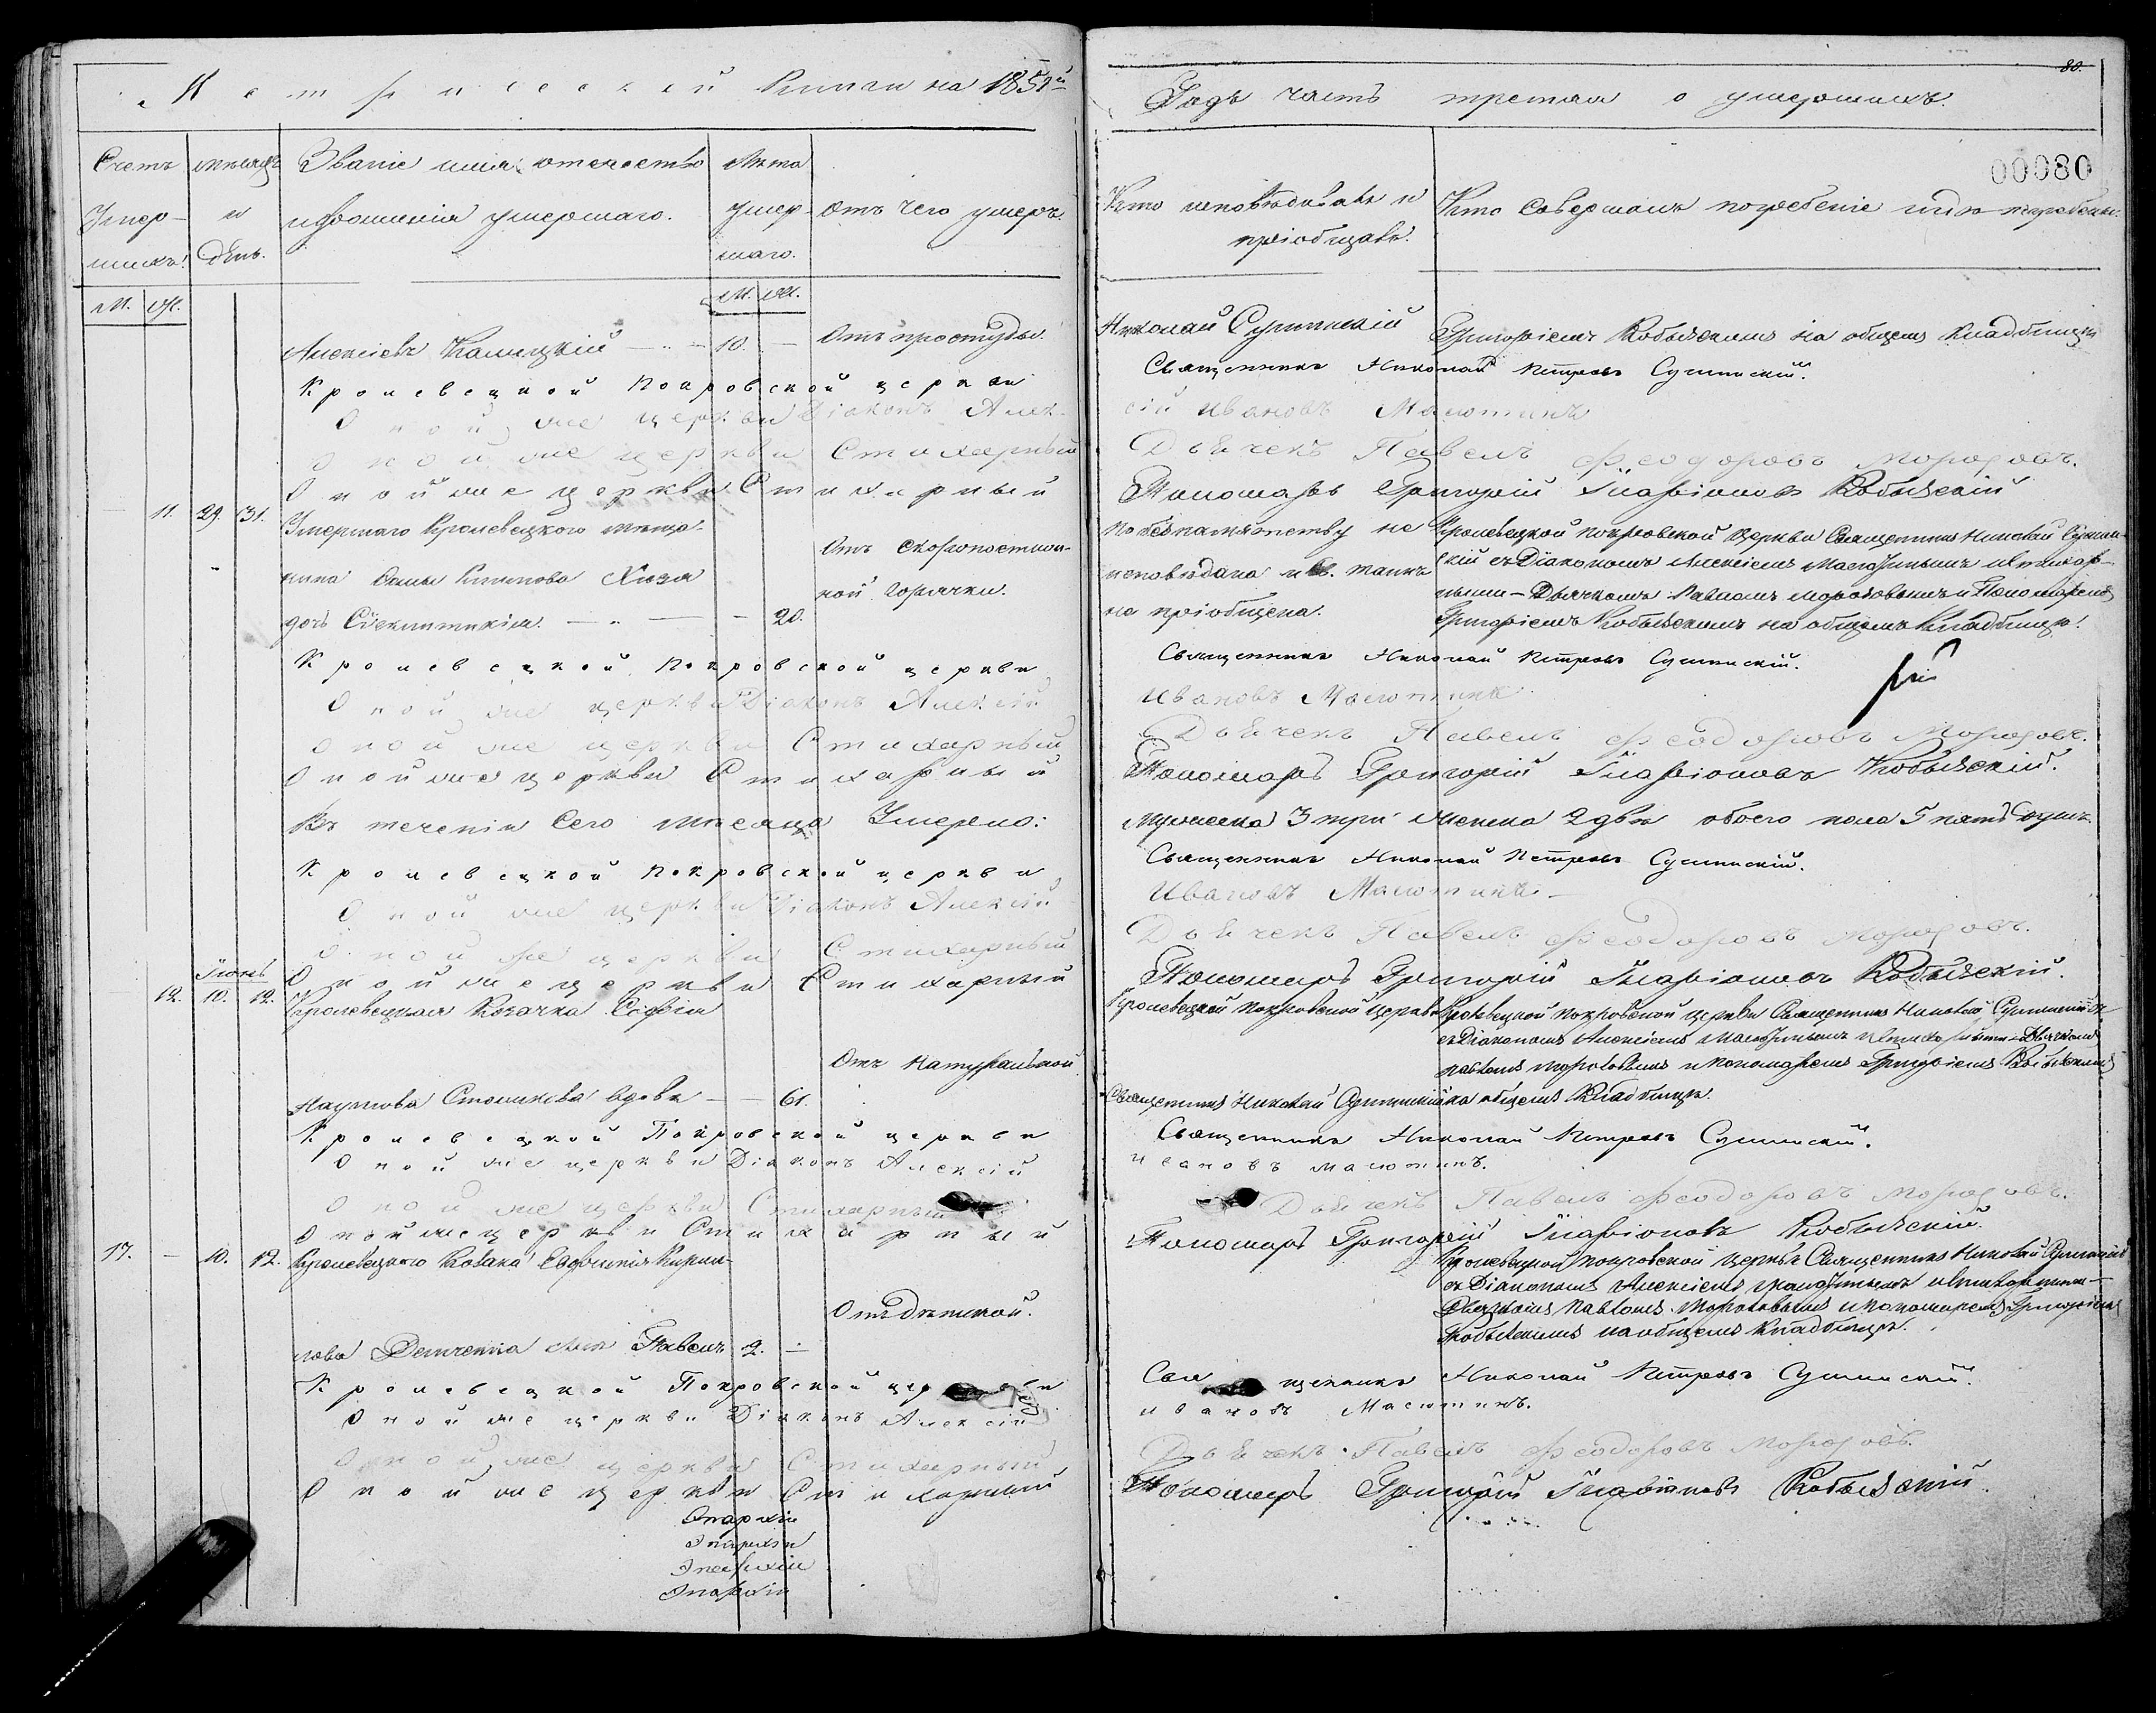 Метрической Книги на 1851й
Годъ часть третая о умершихъ.
80.
00080
Счетъ Умер-шихъ.
мѣсяцъ и день.
Званіе имя отечество
и фамилія умершаго.
Лѣта умер-шаго.
Отъ чего умеръ.
Кто исповѣдывалъ и
пріобщалъ.
Кто совершалъ погребеніе и гдѣ погребены.
М. Ж.
М. Ж.
Алексѣевъ 10. — Отъ простуды.
Николай Сушинскій
Григоріемъ Кобызскимъ на общемъ кладбищѣ
Кролевецкой Покровской церкви
Священникъ Николай Петровъ Сушинскій.
Оной же церкви Діаконъ Алек-
сій Ивановъ Малютинъ
Оной же церкви Стихарный
Дьячекъ Павелъ Феодоровъ Морозовъ.
Оной же церкви Стихарный
Пономарь Григорій Иларіоновъ Кобызскій
11. 29. 31. Умершаго Кролевецкого мѣща-
нина Климова
дочь — 20.
Отъ скоропостиж-
ной горячки.
по безпамятству не
исповѣдана и св. таинъ
не пріобщена.
Кролевецкой Покровской церкви Священникъ Николай Сушин-
скій съ Діакономъ Алексіемъ Малютинымъ и стихар-
ными — Дьячкомъ Павломъ Морозовымъ и Пономаремъ
Григоріемъ Кобызскимъ на общемъ кладбищѣ.
Кролевецкой Покровской церкви
Священникъ Николай Петровъ Сушинскій.
Оной же церкви Діаконъ Алексій
Ивановъ Малютинъ
Оной же церкви Стихарный
Дьячекъ Павелъ Феодоровъ Морозовъ.
Оной же церкви Стихарный
Пономарь Григорій Иларіоновъ Кобызскій.
Въ теченіи сего мѣсяца Умерло:
мужеска 3 три женска 2 двѣ обоего пола 5 пять душъ.
Кролевецкой Покровской церкви
Священникъ Николай Петровъ Сушинскій.
Оной же церкви Діаконъ Алексій
Ивановъ Малютинъ
Оной же церкви Стихарный
Дьячекъ Павелъ Феодоровъ Морозовъ.
Оной же церкви Стихарный
Пономарь Григорій Иларіоновъ Кобызскій.
Іюнь
12. 10. 12. Кролевецкая Козачка Софія
Наумова вдова — 61.
Отъ натуральной
Кролевецкой Покровской церкви
Священникъ Николай Сушинскій
Кролевецкой Покровской церкви Священникъ Николай Сушинскій
съ Діакономъ Алексіемъ Малютинымъ и стихарными Дьячкомъ
Павломъ Морозовымъ и пономаремъ Григоріемъ Кобызскимъ
на общемъ кладбищѣ.
Кролевецкой Покровской церкви
Священникъ Николай Петровъ Сушинскій.
Оной же церкви Діаконъ Алексій
Ивановъ Малютинъ.
Оной же церкви Стихарный
Дьячекъ Павелъ Феодоровъ Морозовъ.
Оной же церкви Стихарный
Пономарь Григорій Иларіоновъ Кобызскій.
17. — 10. 12. Кролевецкого Козака Евфимія Кирил-
лова Демченка сынъ Павелъ 2. —
Отъ дѣтской.
Кролевецкой Покровской церкви Священникъ Николай Сушинскій
съ Діакономъ Алексіемъ Малютинымъ и стихарными —
Дьячкомъ Павломъ Морозовымъ и пономаремъ Григоріемъ
Кобызскимъ на общемъ кладбищѣ.
Кролевецкой Покровской церкви
Священникъ Николай Петровъ Сушинскій.
Оной же церкви Діаконъ Алексій
Ивановъ Малютинъ.
Оной же церкви Стихарный
Дьячекъ Павелъ Феодоровъ Морозовъ.
Оной же церкви Стихарный
Пономарь Григорій Иларіоновъ Кобызскій.